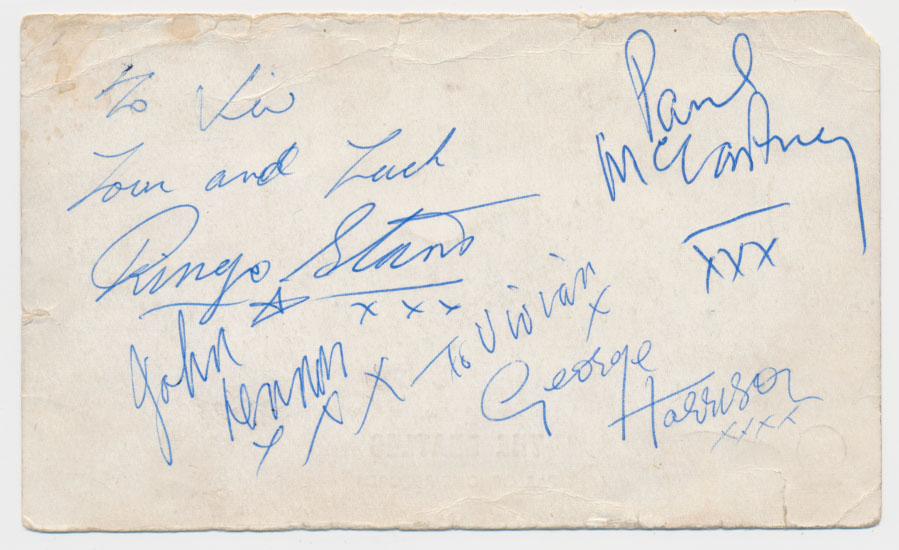 To Viv
Love and Luck
Ringo Starr
xxx
Paul
McCartney
xxx
John
Lennon
xxx
To Vivian
x
George
Harrison
xxxx